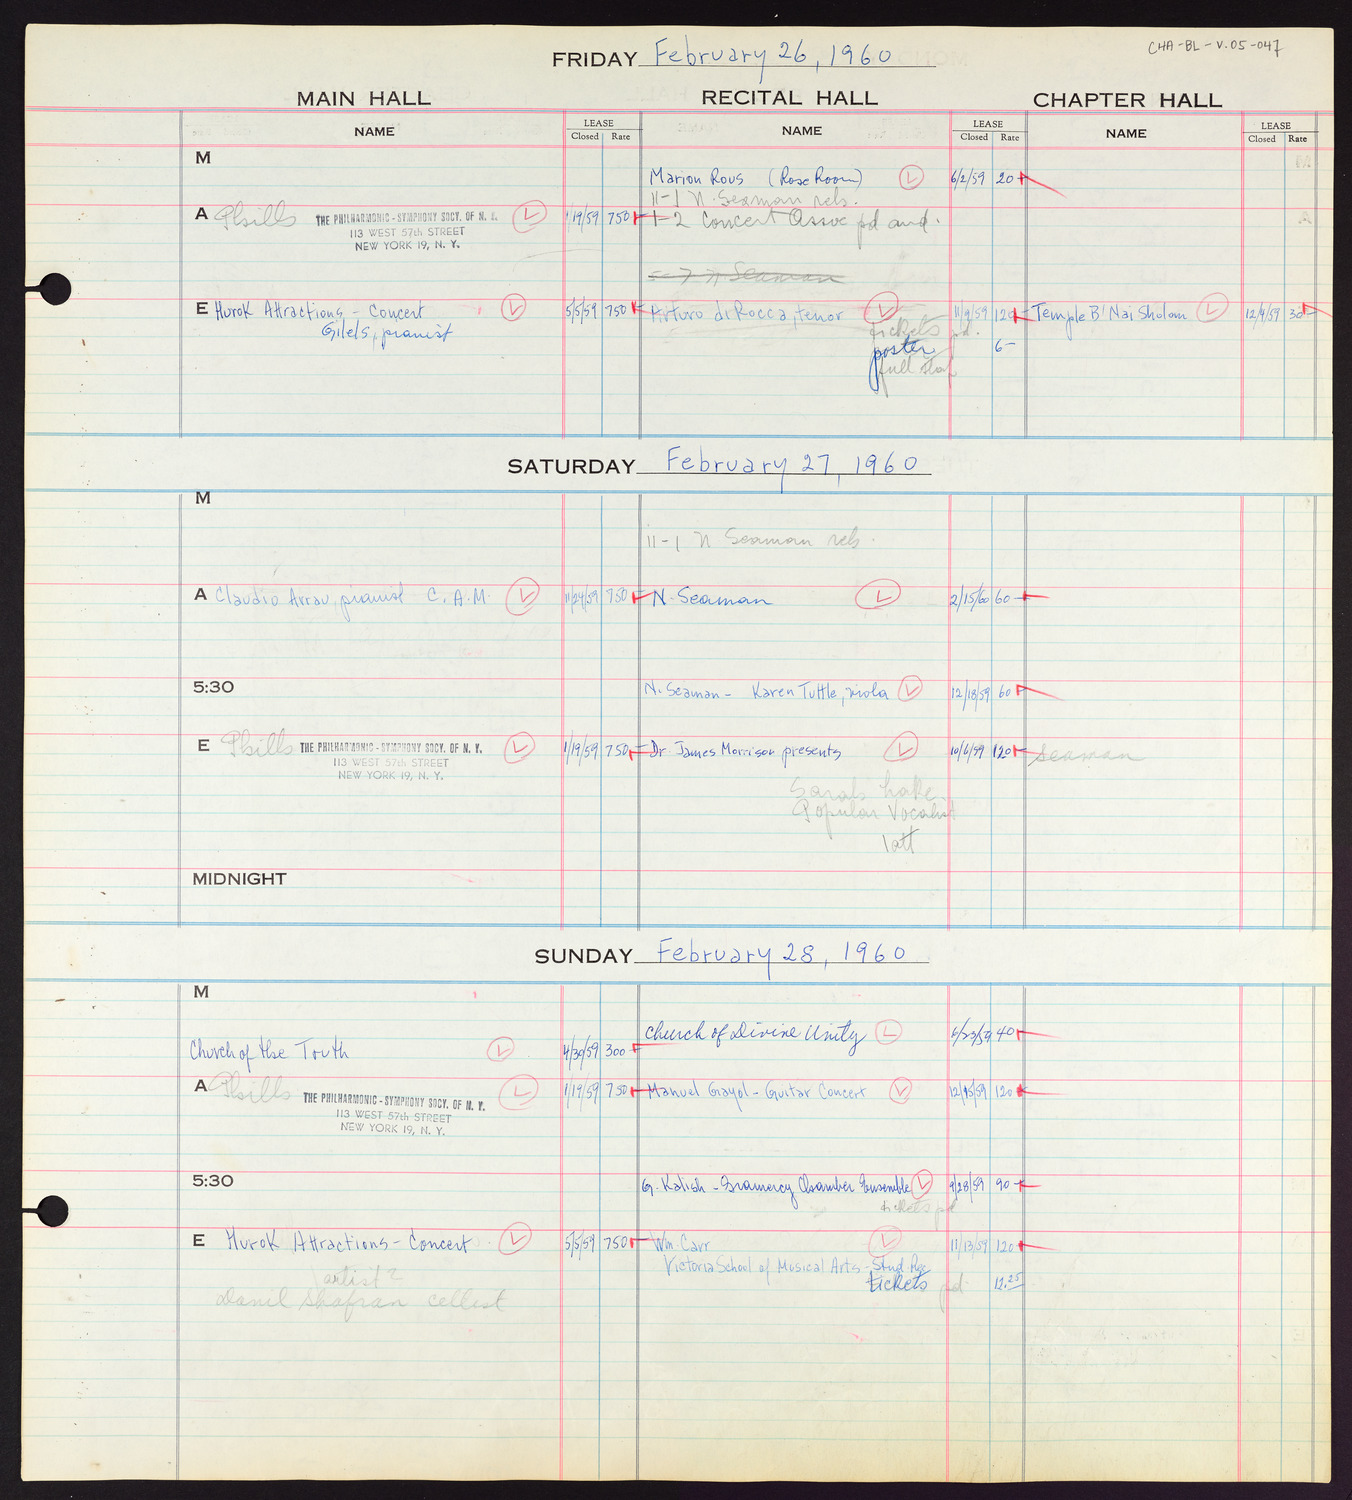 CHA-BL-V.05-047
FRIDAY February 26, 1960
MAIN HALL RECITAL HALL CHAPTER HALL
NAME LEASE Closed Rate NAME LEASE Closed Rate NAME LEASE Closed Rate
M
Marion Rous (Rose Room) L 6/2/59 20
11-1 N. Seaman reh.
A Phills THE PHILHARMONIC-SYMPHONY SOCY. OF N. Y. L 1/19/59 750 1-2 Concert Assoc pd and.
113 WEST 57th STREET
NEW YORK 19, N. Y.
5-7 N Seaman
E Hurok Attractions - Concert L 5/5/59 750 Arturo di Rocca, tenor L 11/9/59 120 Temple B'Nai Sholom L 12/4/59 30
Gilels, pianist tickets pd.
poster 6-
full staf
SATURDAY February 27, 1960
M
11-1 N Seaman reh.
A Claudio Arrau, pianist C.A.M. L 11/24/59 750 N. Seaman L 2/15/60 60
5:30 N. Seaman - Karen Tuttle, viola L 12/18/59 60
E Phills THE PHILHARMONIC-SYMPHONY SOCY. OF N. Y. L 1/19/59 750 Dr. James Morrison presents L 10/6/59 120 Seaman
113 WEST 57th STREET
NEW YORK 19, N. Y.
Popular Vocalist
1 att
MIDNIGHT
SUNDAY February 28, 1960
M
Church of Divine Unity L 6/23/59 40
Church of the Truth L 4/30/59 300
A Phills THE PHILHARMONIC-SYMPHONY SOCY. OF N. Y. L 1/19/59 750 Manuel Gayol - Guitar Concert L 120
113 WEST 57th STREET
NEW YORK 19, N. Y.
5:30 G. Kalish - Gramercy Chamber Ensemble L 9/28/59 90
tickets pd
E Hurok Attractions - Concert L 5/5/59 750 Wm. Carr L 11/13/59 120
Victoria School of Musical Arts - Stud. Rec
artist? tickets pd 12.25
Danil Shafran cellist